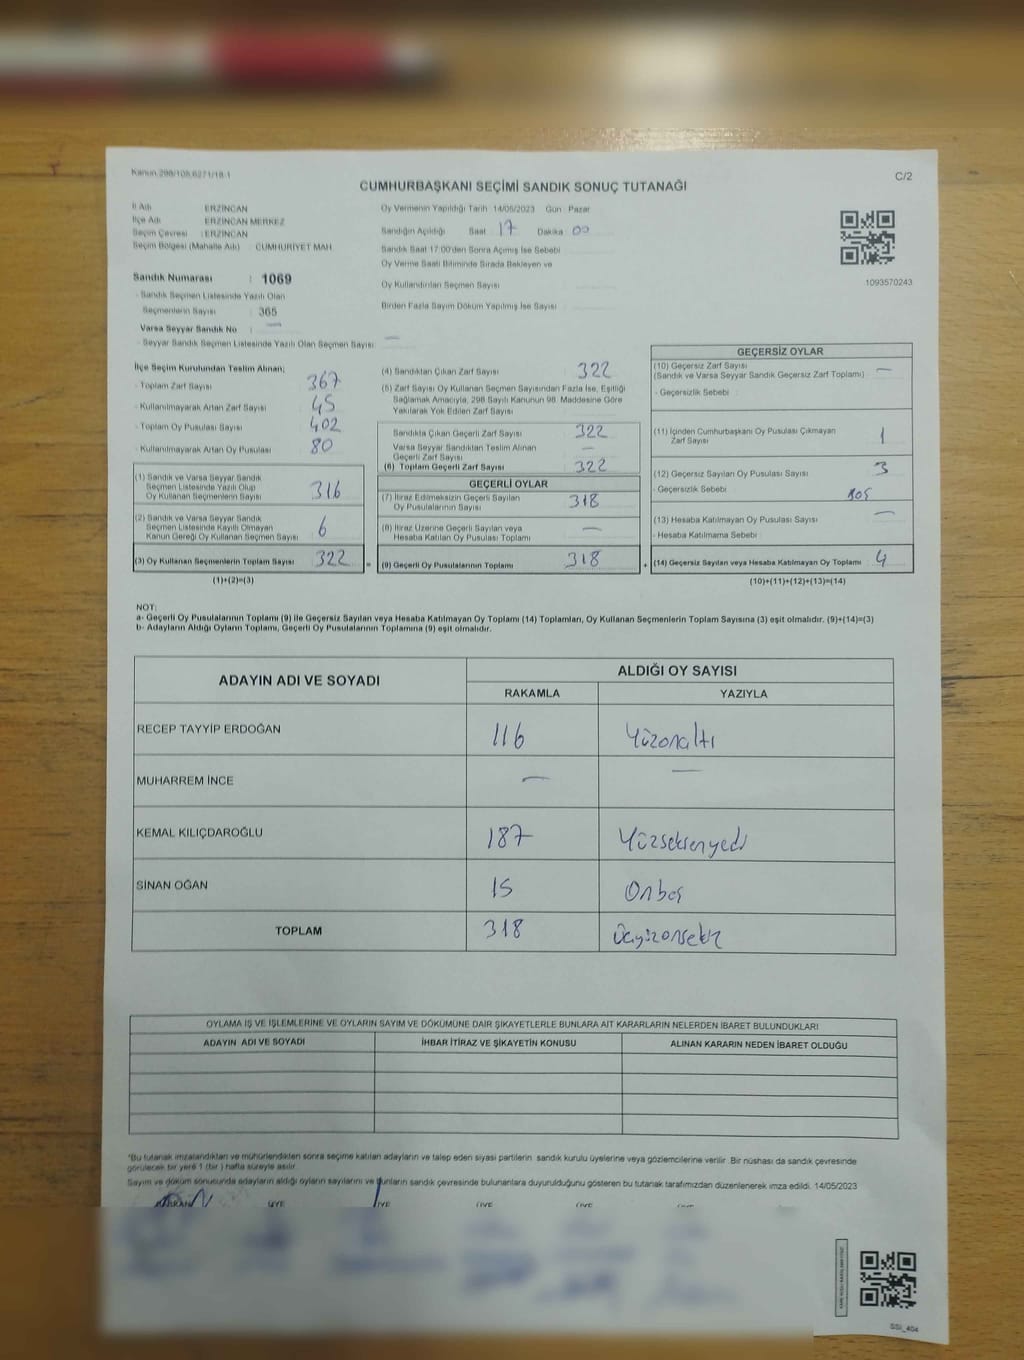 Kanun 298/105,6271/18-1
C/2
CUMHURBAŞKANI SEÇİMİ SANDIK SONUÇ TUTANAĞI
İl Adı : ERZİNCAN
İlçe Adı : ERZİNCAN MERKEZ
Seçim Çevresi : ERZİNCAN
Seçim Bölgesi (Mahalle Adı) : CUMHURİYET MAH.
Sandık Numarası : 1069
- Sandık Seçmen Listesinde Yazılı Olan
Seçmenlerin Sayısı : 365
Varsa Seyyar Sandık No : —
- Seyyar Sandık Seçmen Listesinde Yazılı Olan Seçmen Sayısı: —
Oy Vermenin Yapıldığı Tarih 14/05/2023 Gün Pazar
Sandığın Açıldığı Saat 17 Dakika 00
Sandık Saat 17:00'den Sonra Açılmış İse Sebebi
Oy Verme Saati Bitiminde Sırada Bekleyen ve
Oy Kullandırılan Seçmen Sayısı
Birden Fazla Sayım Döküm Yapılmış İse Sayısı
1093570243
İlçe Seçim Kurulundan Teslim Alınan;
- Toplam Zarf Sayısı 367
- Kullanılmayarak Artan Zarf Sayısı 45
- Toplam Oy Pusulası Sayısı 402
- Kullanılmayarak Artan Oy Pusulası 80
(1) Sandık ve Varsa Seyyar Sandık
Seçmen Listesinde Yazılı Olup
Oy Kullanan Seçmenlerin Sayısı 316
(2) Sandık ve Varsa Seyyar Sandık
Seçmen Listesinde Kayıtlı Olmayan
Kanun Gereği Oy Kullanan Seçmen Sayısı 6
(3) Oy Kullanan Seçmenlerin Toplam Sayısı 322
(1)+(2)=(3)
(4) Sandıktan Çıkan Zarf Sayısı 322
(5) Zarf Sayısı Oy Kullanan Seçmen Sayısından Fazla İse, Eşitliği
Sağlamak Amacıyla, 298 Sayılı Kanunun 98. Maddesine Göre
Yakılarak Yok Edilen Zarf Sayısı
Sandıkta Çıkan Geçerli Zarf Sayısı 322
Varsa Seyyar Sandıktan Teslim Alınan
Geçerli Zarf Sayısı —
(6) Toplam Geçerli Zarf Sayısı 322
GEÇERLİ OYLAR
(7) İtiraz Edilmeksizin Geçerli Sayılan
Oy Pusulalarının Sayısı 318
(8) İtiraz Üzerine Geçerli Sayılan veya
Hesaba Katılan Oy Pusulası Toplamı —
= (9) Geçerli Oy Pusulalarının Toplamı 318
GEÇERSİZ OYLAR
(10) Geçersiz Zarf Sayısı
(Sandık ve Varsa Seyyar Sandık Geçersiz Zarf Toplamı) —
- Geçersizlik Sebebi :
(11) İçinden Cumhurbaşkanı Oy Pusulası Çıkmayan
Zarf Sayısı 1
(12) Geçersiz Sayılan Oy Pusulası Sayısı 3
- Geçersizlik Sebebi : BOŞ
(13) Hesaba Katılmayan Oy Pusulası Sayısı —
- Hesaba Katılmama Sebebi :
+ (14) Geçersiz Sayılan veya Hesaba Katılmayan Oy Toplamı 4
(10)+(11)+(12)+(13)=(14)
NOT:
a- Geçerli Oy Pusulalarının Toplamı (9) ile Geçersiz Sayılan veya Hesaba Katılmayan Oy Toplamı (14) Toplamları, Oy Kullanan Seçmenlerin Toplam Sayısına (3) eşit olmalıdır. (9)+(14)=(3)
b- Adayların Aldığı Oyların Toplamı, Geçerli Oy Pusulalarının Toplamına (9) eşit olmalıdır.
ADAYIN ADI VE SOYADI
ALDIĞI OY SAYISI
RAKAMLA YAZIYLA
RECEP TAYYİP ERDOĞAN 116 Yüzonaltı
MUHARREM İNCE — —
KEMAL KILIÇDAROĞLU 187 Yüzseksenyedi
SİNAN OĞAN 15 Onbeş
TOPLAM 318 Üçyüzonsekiz
OYLAMA İŞ VE İŞLEMLERİNE VE OYLARIN SAYIM VE DÖKÜMÜNE DAİR ŞİKAYETLERLE BUNLARA AİT KARARLARIN NELERDEN İBARET BULUNDUKLARI
ADAYIN ADI VE SOYADI İHBAR İTİRAZ VE ŞİKAYETİN KONUSU ALINAN KARARIN NEDEN İBARET OLDUĞU
*Bu tutanak imzalandıktan ve mühürlendikten sonra seçime katılan adayların ve talep eden siyasi partilerin sandık kurulu üyelerine veya gözlemcilerine verilir. Bir nüshası da sandık çevresinde
görülecek bir yere 1 (bir ) hafta süreyle asılır.
Sayım ve döküm sonusunda adayların aldığı oyların sayılarını ve bunların sandık çevresinde bulunanlara duyurulduğunu gösteren bu tutanak tarafımızdan düzenlenerek imza edildi. 14/05/2023
BAŞKAN ÜYE ÜYE ÜYE ÜYE ÜYE
SSİ_404